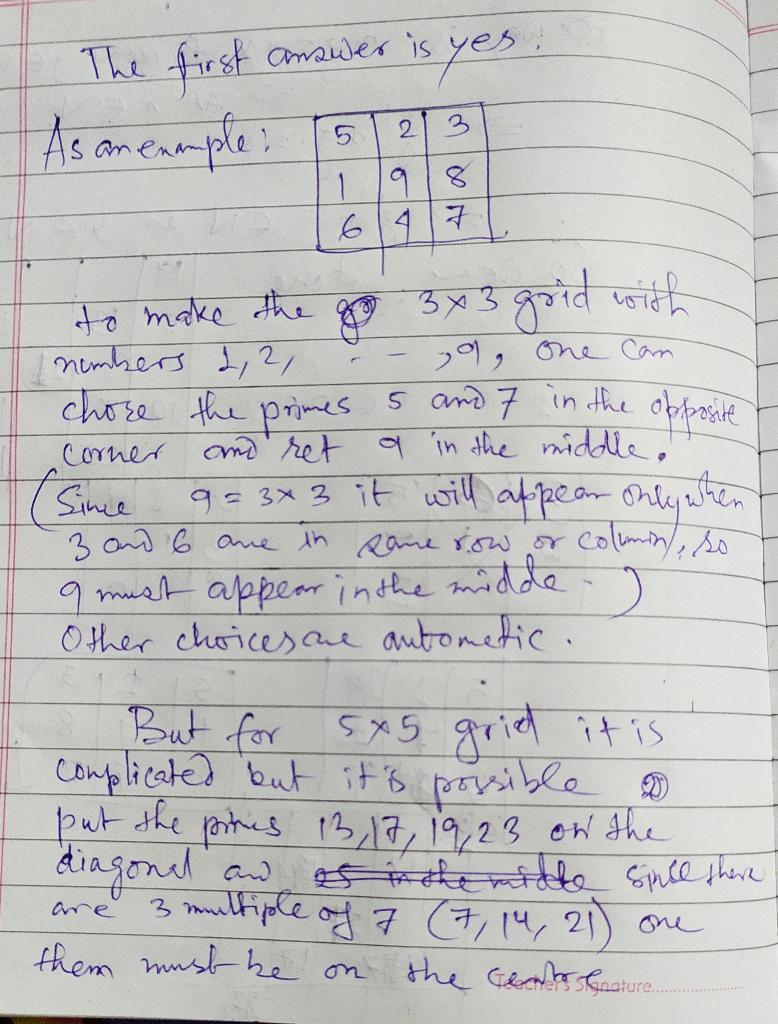 The first answer is yes.
As an example:
5 2 3
1 9 8
6 4 7
to make the 3x3 grid with
numbers 1, 2, - - , 9, one can
chose the primes 5 and 7 in the opposite
corner and set 9 in the middle.
(Since 9 = 3x3 it will appear only when
3 and 6 are in same row or column, so
9 must appear in the midde - )
Other choices are autometic.
But for 5x5 grid it is
complicated but it is possible
put the primes 13, 17, 19, 23 on the
diagonal and 25 in the middle since there
are 3 multiple of 7 (7, 14, 21) one
them must be on the centre
Teacher's Signature..................